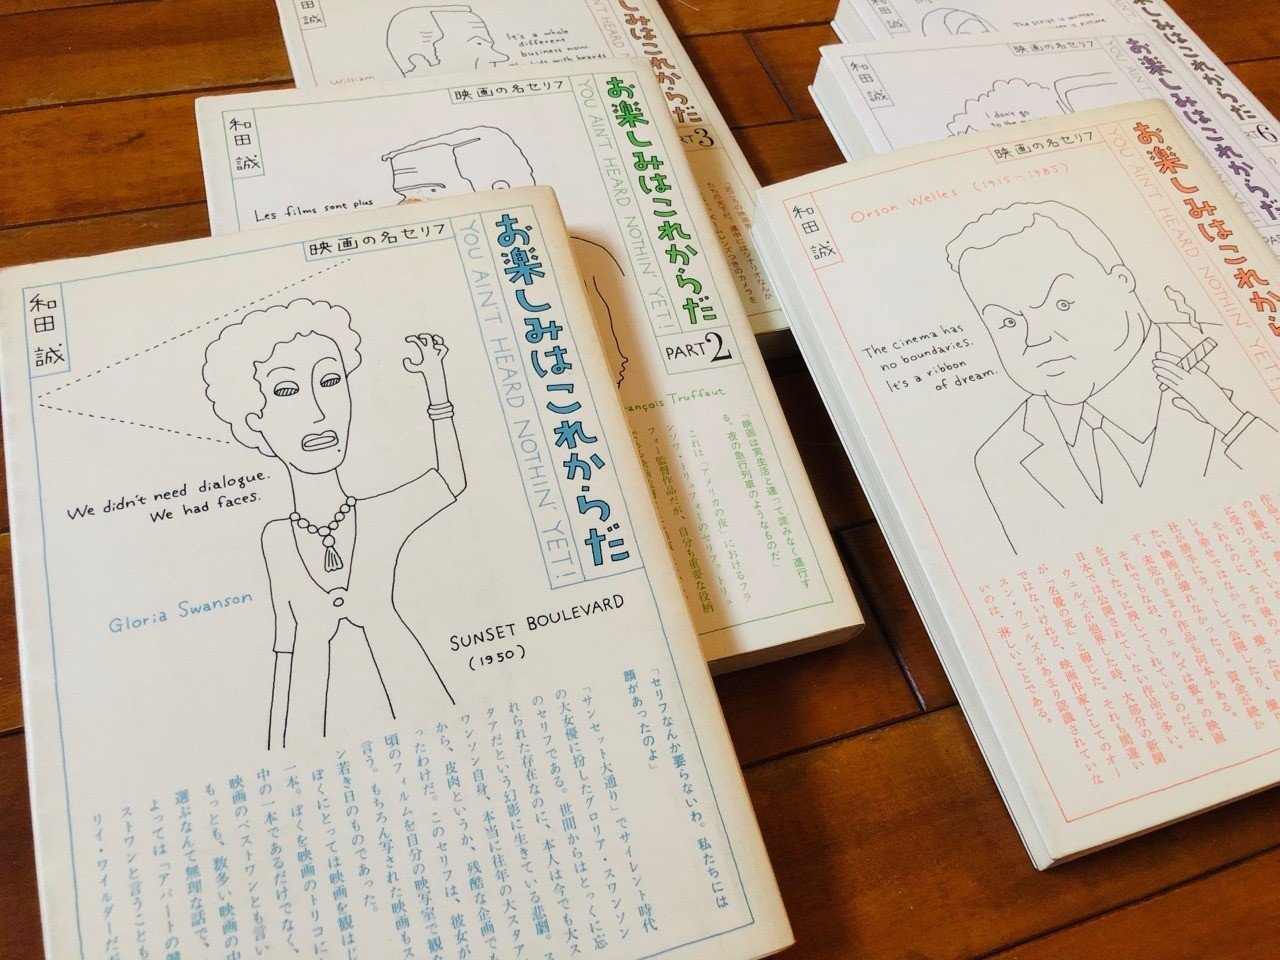 和田誠
映画の名セリフ
お楽しみはこれからだ
YOU AIN'T HEARD NOTHIN' YET!
We didn't need dialogue.
We had faces.
Gloria Swanson
SUNSET BOULEVARD
(1950)
「セリフなんか要らないわ。私たちには
顔があったのよ」
「サンセット大通り」でサイレント時代
の大女優に扮したグロリア・スワンソン
のセリフである。世間からはとっくに忘
れられた存在なのに、本人は今でも大ス
タアだという幻影に生きている悲劇。ス
ワンソン自身、本当に往年の大スタア
から、皮肉というか、残酷な企画でも
ったわけだ。このセリフは、彼女が
頃のフィルムを自分の映写室で観な
言う。もちろん写された映画もス
ン若き日のものであった。
ぼくにとっては映画を観はじ
一本。ぼくを映画のトリコに
中の一本であるだけでなく、
映画のベストワンとも言い
もっとも、数多い映画の中
選ぶなんて無理な話で、
よっては「アパートの鍵
ストワンと言うことも
リイ・ワイルダーだ
和田誠
映画の名セリフ
お楽しみはこれからだ
YOU AIN'T HEARD NOTHIN' YET!
PART2
Les films sont plus
ançois Truffaut
「映画は実生活と違って淀みなく進行す
る。夜の急行列車のようなものだ」
これは「アメリカの夜」におけるフラ
ンソワ・トリュフォーのセリフ。トリュ
フォー監督作品だが、自分も重要な役柄
田誠
しみはこれからだ
AIN'T HEARD
ART3
It's a whole
different
business now.
kids with beards
William
和田誠
映画の名セリフ
お楽しみはこれから
YOU AIN'T HEARD NOTHIN' YET!
Orson Welles (1915–1985)
The cinema has
no boundaries.
It's a ribbon
of dream.
に受けつがれて、その後の
それなのに、ウェルズは数々の映画
しも幸せではなかった。
社が勝手にカットして公開したり、資金が続か
たい映画が撮れなかったり。
ず、未完のままの作品も何本かある。
それでもなお、ウェルズは
をぼくたちに残してくれているのだが、
日本では公開されていない作品が多い。
ウェルズが他界した時、大部分の新聞
が「名優の死」と報じた。それも間違い
ではないけれど、映画作家としてのオー
スン・ウェルズがあまり認識されていな
いのは、淋しいことである。
和田誠
映画の名セリフ
お楽しみはこれからだ
YOU AIN'T
I don't go
和田誠
楽しみはこれからだ
YOU AIN'T
RT6
The script is written